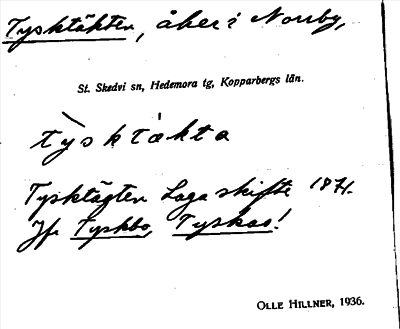 Tysktäkten, åker i Norrby,
St. Skedvi sn, Hedemora tg, Kopparbergs län.
tỳsktàkta
Tysktägten Laga skifte 1871.
Jfr Tyskbo, Tyskas!
OLLE HILLNER, 1936.